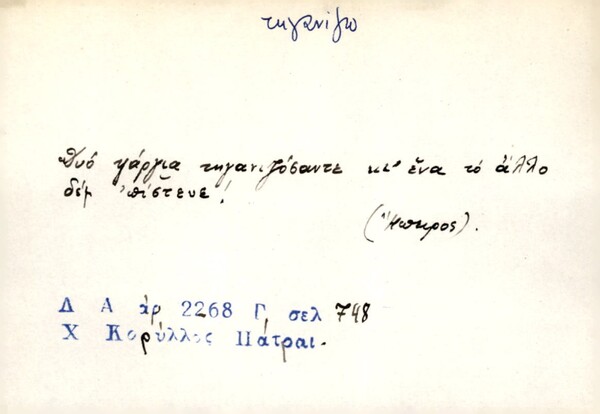 τηγανίζω
Δυό ψάρια τηγανιζόσαντε κι' ἕνα τό ἄλλο
δέν 'πίστευε!
(Ἤπειρος).
Δ Α ἀρ 2268 Γ, σελ 748
Χ Κορύλλος Πάτραι.